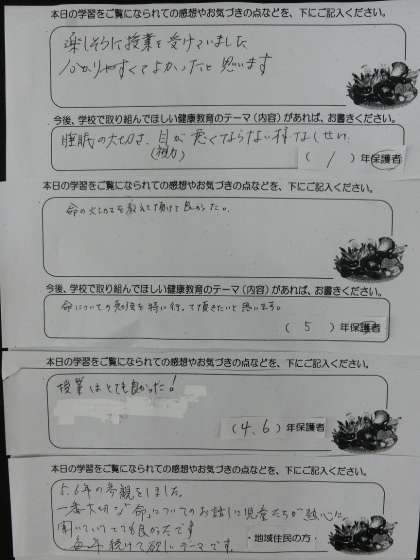 本日の学習をご覧になられての感想やお気づきの点などを、下にご記入ください。
楽しそうに授業を受けていました
分かりやすくてよかったと思います
今後、学校で取り組んでほしい健康教育のテーマ(内容)があれば、お書きください。
睡眠の大切さ、目が悪くならない様な
(視力)
( 1 )年保護者
本日の学習をご覧になられての感想やお気づきの点などを、下にご記入ください。
命の大切さを教えて頂けて良かった。
今後、学校で取り組んでほしい健康教育のテーマ(内容)があれば、お書きください。
命についての勉強を特に行って頂きたいと思います。
( 5 )年保護者
本日の学習をご覧になられての感想やお気づきの点などを、下にご記入ください。
授業はとても良かった!
(4、6)年保護者
本日の学習をご覧になられての感想やお気づきの点などを、下にご記入ください。
5.6年の参観をしました。
一番大切な"命"についてのお話しに児童たちが熱心に
聞いていてとても良かったです
毎年続けて欲しいテーマです。
・地域住民の方・